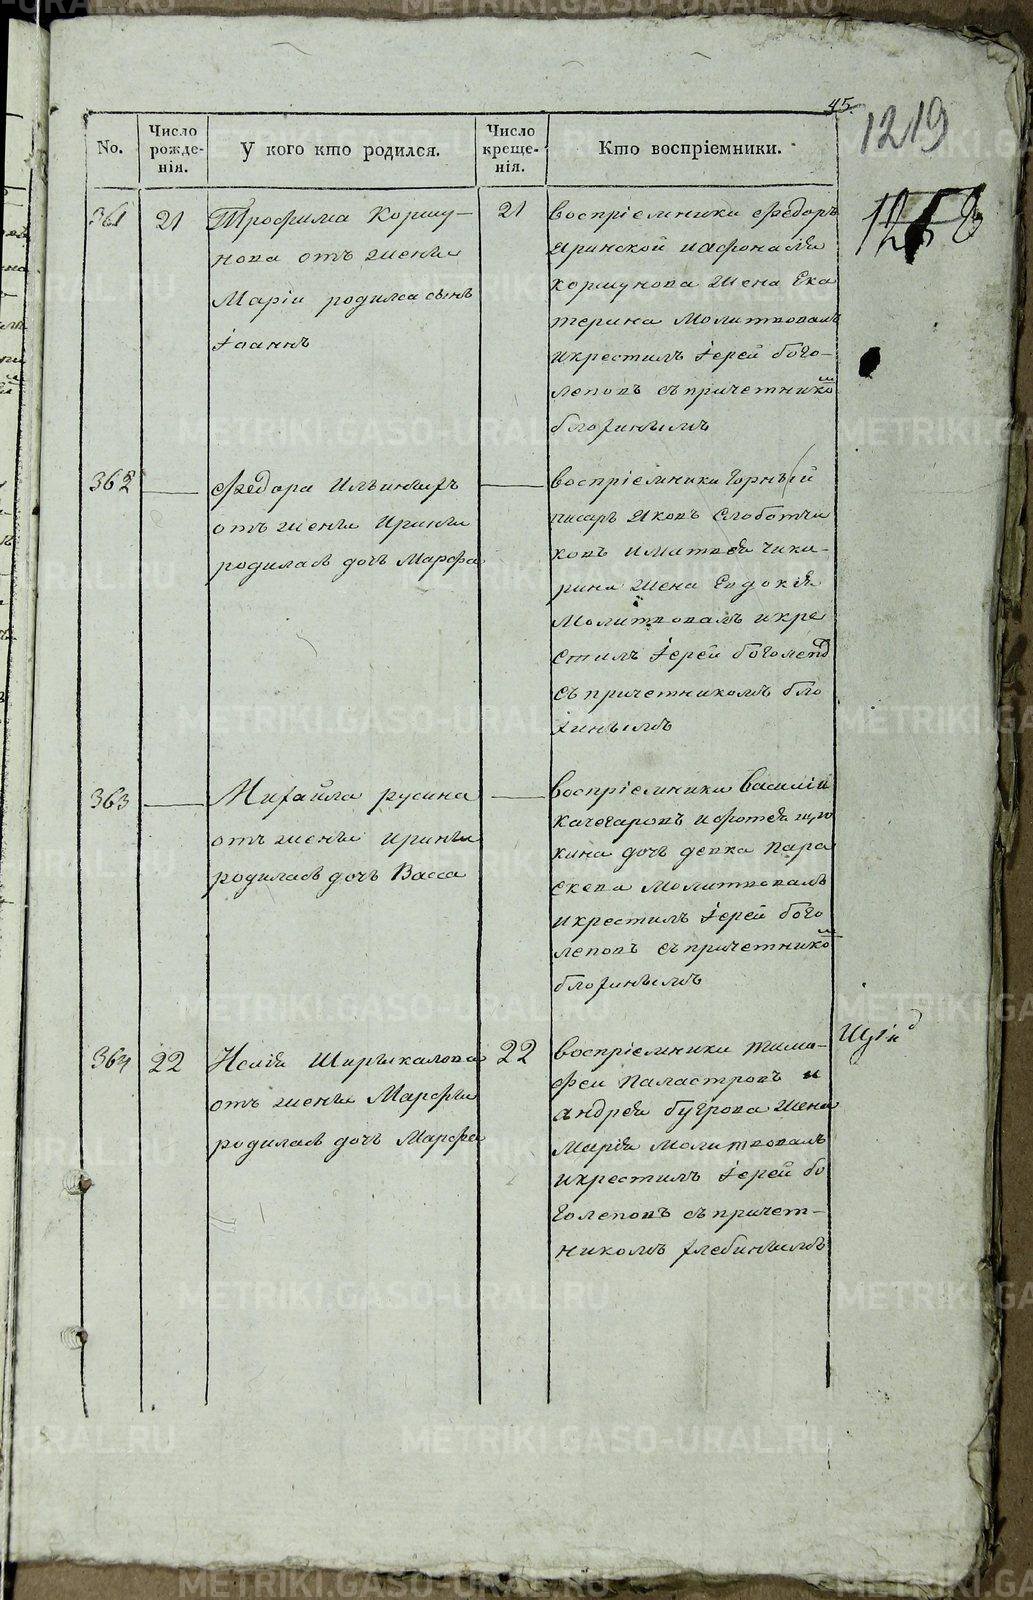 45.
1219
1258
No.
Число рожде-нія.
У кого кто родился.
Число креще-нія.
Кто воспріемники.
361
21
Трофима Коршу-
нова отъ жены
Маріи родился сынъ
Іоаннъ
21
воспріемники Федоръ
Иринской и Афонасія
коршунова жена Ека
терина Молитвовалъ
и крестилъ Іерей бого-
леповъ съ причетнико м
блохинымъ
362
Федора Ильиныхъ
отъ жены Ирины
родилась дочь Марфа
воспріемники Горный
писарь Яковъ Слоботчи
ковъ и Матвея чика-
рина жена Евдокія
Молитвовалъ и кре
стилъ Іерей боголепов
съ причетникомъ бло
хинымъ
363
Михайла русина
отъ жены Ирины
родилась дочь Васса
воспріемники Василій
качегаровъ и Фотея щу
кина дочь девка Пара
скева Молитвовалъ
и крестилъ Іерей бого
леповъ съ причетнико м
блохинымъ
364
22
Исаія Ширыкалова
отъ жены Марфы
родилась дочь Марфа
22
воспріемники Тимо-
фей Паластровъ и
андрея бугрова жена
Марія Молитвовалъ
и крестилъ Іерей бо
голеповъ съ причет-
никомъ хлебинымъ
METRIKI.GASO-URAL.RU